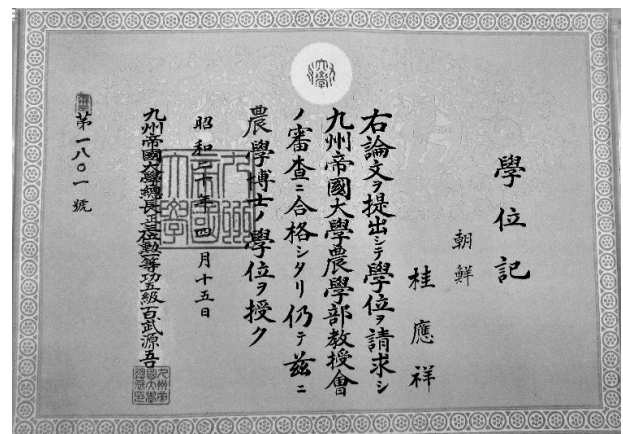 大學
學位記
朝鮮
桂應祥
右論文ヲ提出シテ學位ヲ請求シ
九州帝國大學農學部教授會
ノ審査ニ合格シタリ仍テ茲ニ
農學博士ノ學位ヲ授ク
昭和二十年四月十五日
九州帝國大學
九州帝國大學總長正三位勳一等功五級百武源吾
第一八〇一號